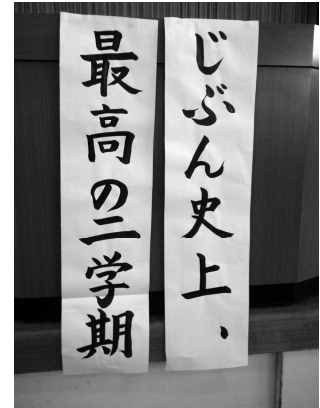 じぶん史上、
最高の二学期